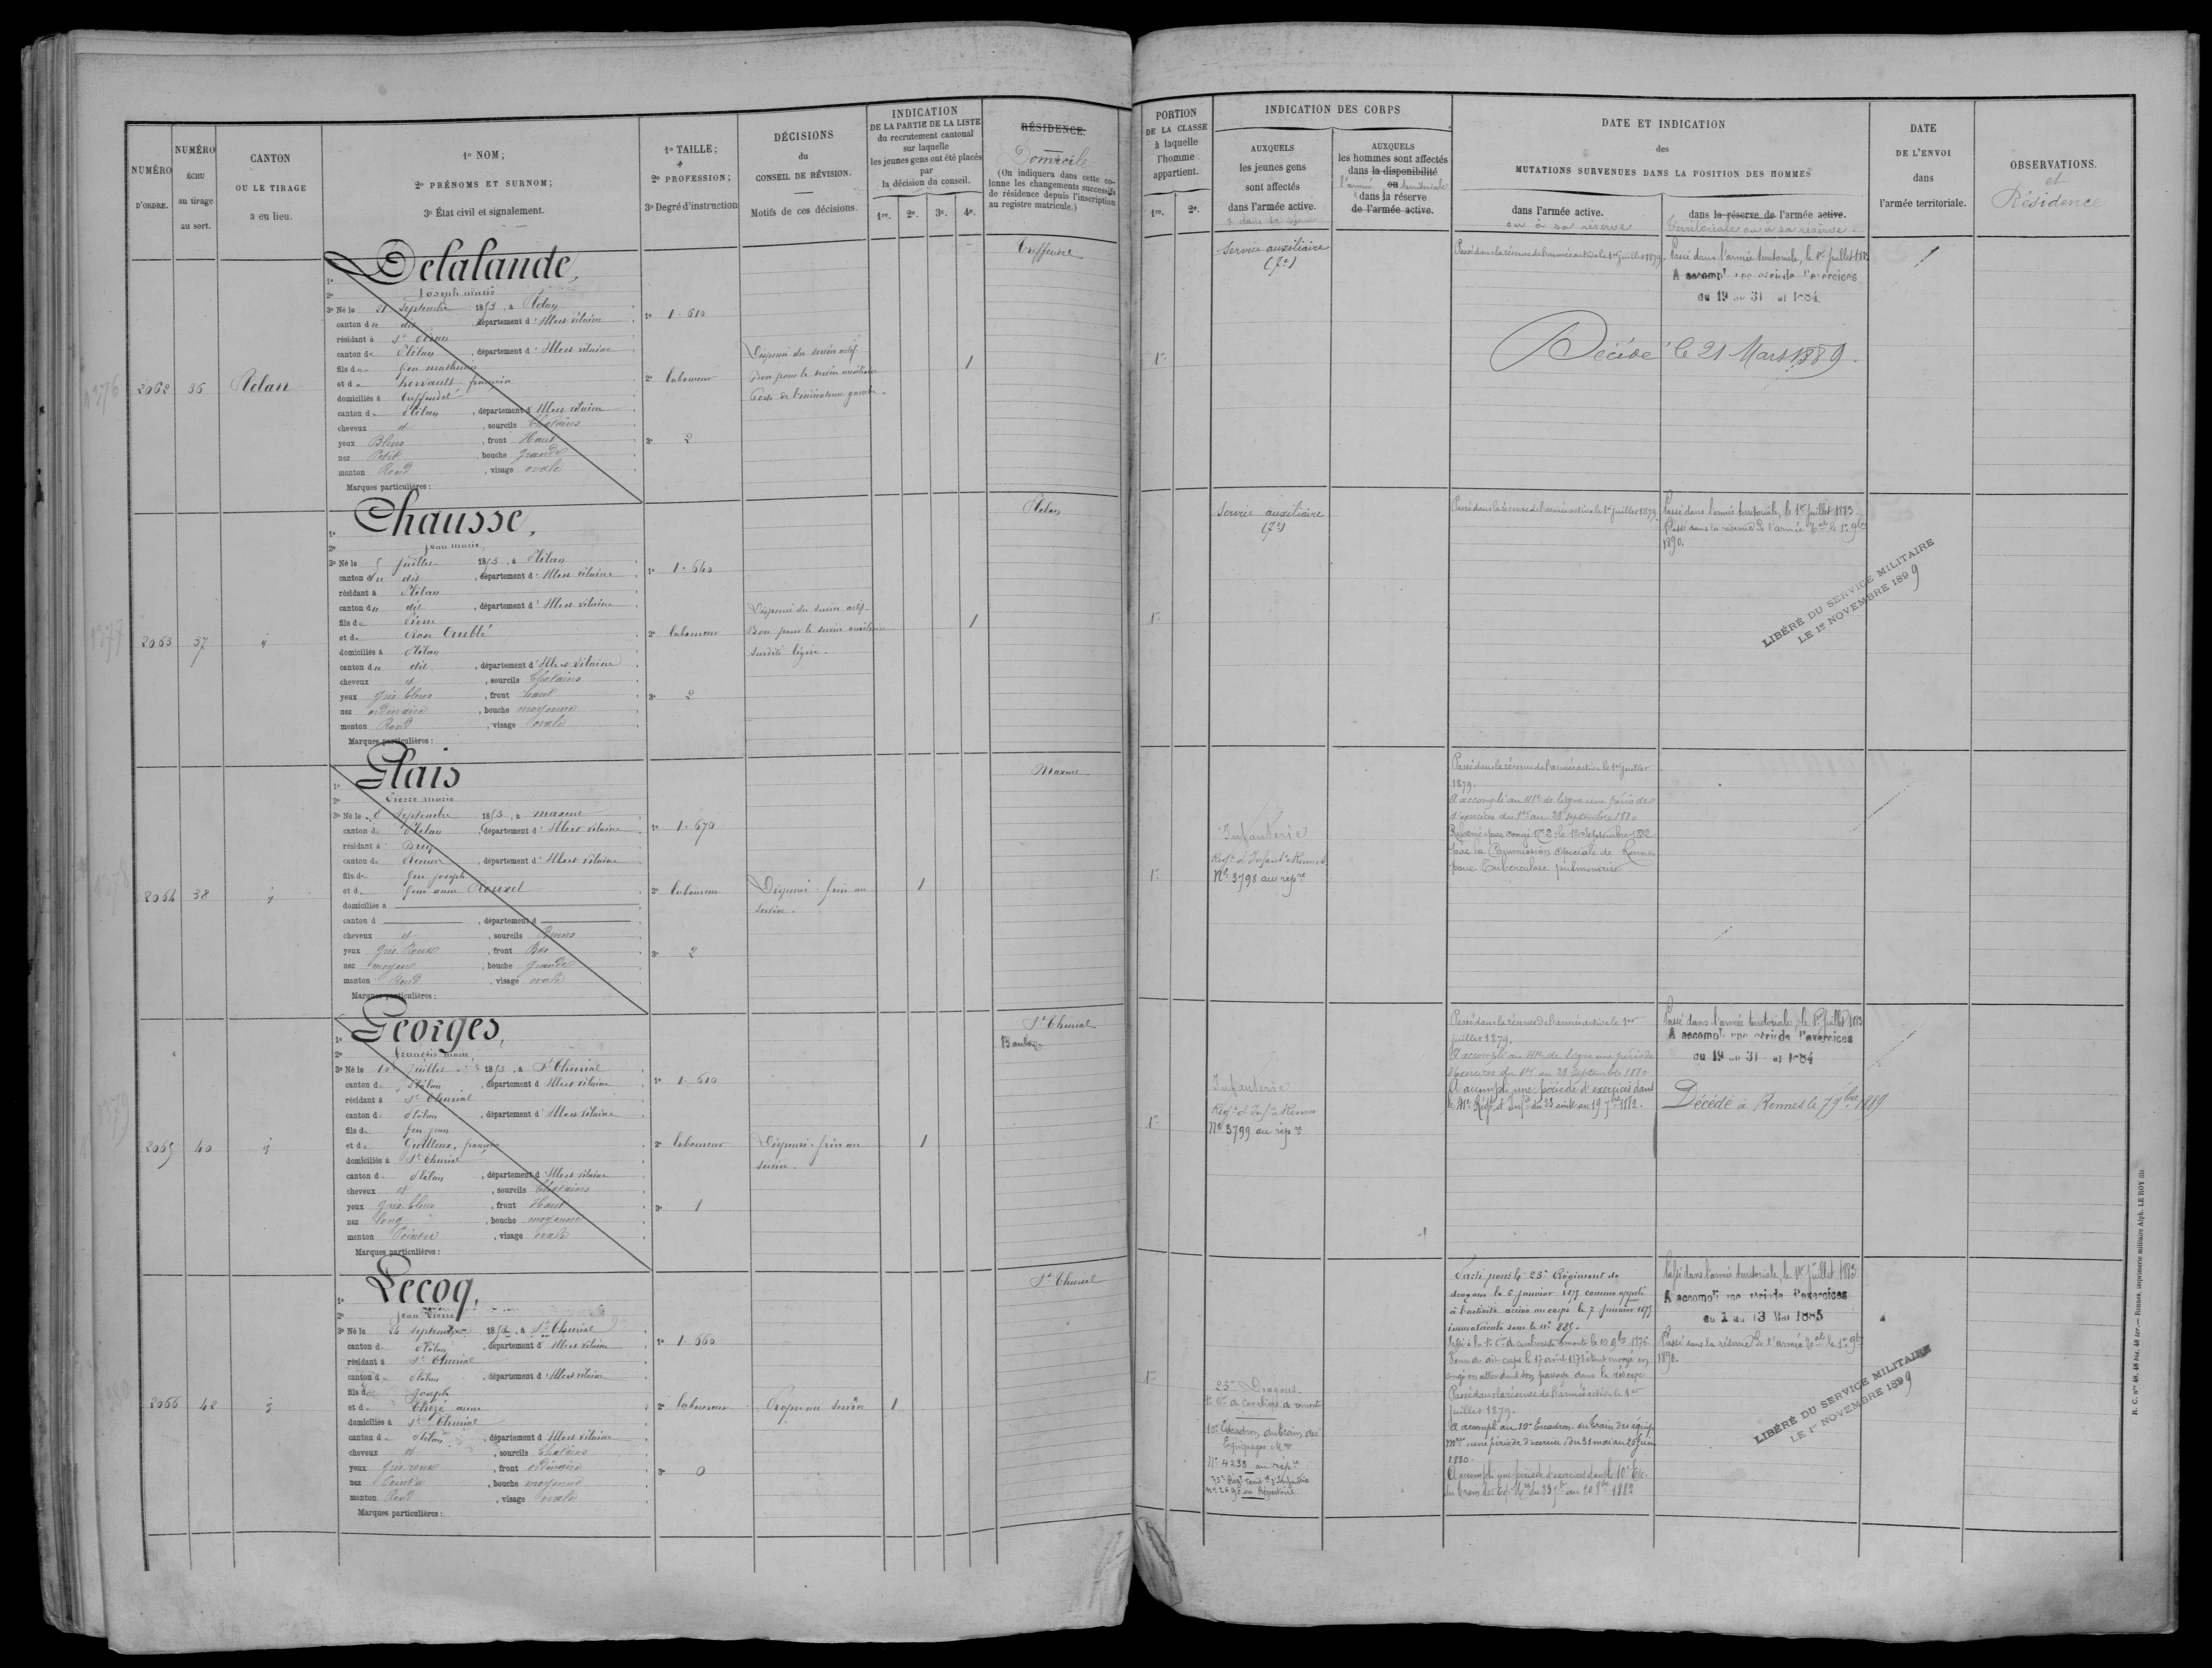 NUMÉRO
D'ORDRE.
NUMÉRO
ÉCHU
au tirage
au sort.
CANTON
OU LE TIRAGE
a eu lieu.
1º NOM;
2º PRÉNOMS ET SURNOM;
3º État civil et signalement.
1º TAILLE;
2º PROFESSION;
3º Degré d'instruction
DÉCISIONS
du
CONSEIL DE RÉVISION.
Motifs de ces décisions.
INDICATION
DE LA PARTIE DE LA LISTE
du recrutement cantonal
sur laquelle
les jeunes gens ont été placés
par
la décision du conseil.
1re. 2e. 3e. 4e.
RÉSIDENCE
Domicile
(On indiquera dans cette co-
lonne les changements successifs
de résidence depuis l'inscription
au registre matricule.)
2062 36 Plélan
Delalande,
1º
2º Joseph marie
3º Né le 21 Septembre 1853, à Plélan
canton du dit, département d'Ille et vilaine
résidant à St
canton de Plélan, département d'Ille et vilaine
fils de feu mathurin
et de françoise
domiciliés à Treffendel
canton de Plélan, département d'Ille et vilaine
cheveux et, sourcils Chatains
yeux Bleus, front Haut
nez Petit, bouche grande
menton Rond, visage ovale
Marques particulières:
1º 1.610
2º laboureur
3º 2
Dispensé du service actif
Bon pour le service auxiliaire
1
Treffendel
2063 37 id
Chausse,
1º
2º Jean marie
3º Né le 5 Juillet 1853, à Plélan
canton du dit, département d'Ille et vilaine
résidant à Plélan
canton du dit, département d'Ille et vilaine
fils de Pierre
et de Rose
domiciliés à Plélan
canton du dit, département d'Ille et Vilaine
cheveux et, sourcils Chatains
yeux gris bleus, front haut
nez ordinaire, bouche moyenne
menton Rond, visage ovale
Marques particulières:
1º 1.640
2º laboureur
3º 2
Dispensé du service actif
Bon pour le service auxiliaire
surdité légère.
1
Plélan
2064 38 id
Glais
1º
2º Pierre marie
3º Né le 8 Septembre 1853, à maxent
canton de Plélan, département d'Ille et vilaine
résidant à Bruz
canton de Rennes, département d'Ille et vilaine
fils de feu joseph
et de feue anne Rouxel
domiciliés à
canton d, département d
cheveux et, sourcils Bruns
yeux gris Roux, front Bas
nez moyen, bouche grande
menton Rond, visage ovale
Marques particulières:
1º 1.670
2º laboureur
3º 2
Dispensé. frère au
service.
1
Maxent
2065 40 id
Georges,
1º
2º françois marie,
3º Né le 10 Juillet 1853, à St Thurial
canton de Plélan, département d'Ille et vilaine
résidant à St Thurial
canton de Plélan, département d'Ille et vilaine
fils de feu jean
et de Guilloux, françoise
domiciliés à St Thurial
canton de Plélan, département d'Ille et vilaine
cheveux et, sourcils Chatains
yeux gris bleus, front Haut
nez long, bouche moyenne
menton Pointu, visage ovale
Marques particulières:
1º 1.610
2º laboureur
3º 1
Dispensé. frère au
service.
1
St Thurial
Baulon
2066 42 id
Lecoq,
1º
2º Jean Pierre
3º Né le 24 septembre 1853, à St Thurial
canton de Plélan, département d'Ille et vilaine
résidant à St Thurial
canton de Plélan, département d'Ille et vilaine
fils de Joseph
et de Thézé anne
domiciliés à St Thurial
canton de Plélan, département d'Ille et vilaine
cheveux et, sourcils Chatains
yeux gris roux, front ordinaire
nez Pointu, bouche moyenne
menton Rond, visage ovale
Marques particulières:
1º 1.660
2º laboureur
3º 0
Propre au service
1
St Thurial
PORTION
DE LA CLASSE
à laquelle
l'homme
appartient.
1re. 2e.
INDICATION DES CORPS
AUXQUELS
les jeunes gens
sont affectés
dans l'armée active.
AUXQUELS
les hommes sont affectés
dans la disponibilité
ou
l'armée territoriale
dans la réserve
de l'armée active.
DATE ET INDICATION
des
MUTATIONS SURVENUES DANS LA POSITION DES HOMMES
dans l'armée active.
ou à sa réserve
dans la réserve de l'armée active.
territoriale ou à sa réserve
DATE
DE L'ENVOI
dans
l'armée territoriale.
OBSERVATIONS.
et
Résidence
1re
Service auxiliaire
Passé dans la réserve de l'armée active le 1er juillet 1879.
Passé dans l'armée territoriale, le 1er Juillet 1883
A accompl une période d'exercices
du 19 au 31 1884
Décédé le 21 Mars 1889.
1re
Service auxiliaire
Passé dans la réserve de l'armée active le 1er juillet 1879.
Passé dans l'armée territoriale, le 1er juillet 1883.
Passé dans la réserve de l'armée le 1er 9bre
1890.
LIBÉRÉ DU SERVICE MILITAIRE
LE 1er NOVEMBRE 1899
1re
Infanterie
Régt d'Infante Rennes
No 3798 au répre
Passé dans la réserve de l'armée active le 1er juillet
1879.
A accompli au 41e de ligne une période
d'exercices du 1er au 28 septembre 1880
Réformé par congé No 2 le septembre 1882
par la Commission Spéciale de Rennes
pour Tuberculose pulmonaire
1re
Infanterie
Régt d'Infe Rennes
No 3799 au répre
Passé dans la réserve de l'armée active le 1er
juillet 1879.
A accompli au 41e de ligne une période
d'exercices du 1er au 28 septembre 1880
A accompli une période d'exercices dans
le 41e Régt d'Infie du 23 août au 19 7bre 1882.
Passé dans l'armée territoriale, le 1er Juillet 1883
A accompl une période d'exercices
du 19 au 31 1884
Décédé à Rennes le 7 9bre 1889
1re
23e Dragons
1re Cie de Cavaliers de remonte
10e Escadron du train des
Equipages Mres
No 4238 au répre
d'Infanterie
au Répertoire.
Parti pour le 23e Régiment de
dragons le 5 janvier 1875 comme appelé
à l'activité arrivé au corps le 7 janvier 1875
immatriculé sous le No 885.
Passé à la 1re Cie de cavaliers de remonte le 10 9bre 1876
congé en attendant son passage dans la réserve
Passé dans la réserve de l'armée active le 1er
juillet 1879.
A accompli au 10e Escadron du train des équip.
Mres une période d'exercices du 31 mai au 26 Juin
1880.
A accompli une période d'exercices dans le 10e Esc.
du train des Eq. Mres du 23 7bre au 20 8bre 1882
Passé dans l'armée territoriale, le 1er juillet 1883.
A accompli une période d'exercices
du 1 au 13 Mai 1885
Passé dans la réserve de l'armée le 1er 9bre
1890.
LIBÉRÉ DU SERVICE MILITAIRE
LE 1er NOVEMBRE 1899
R. C. nos 48, 48 bis, 48 ter. — Rennes, imprimerie militaire Alph. LE ROY fils